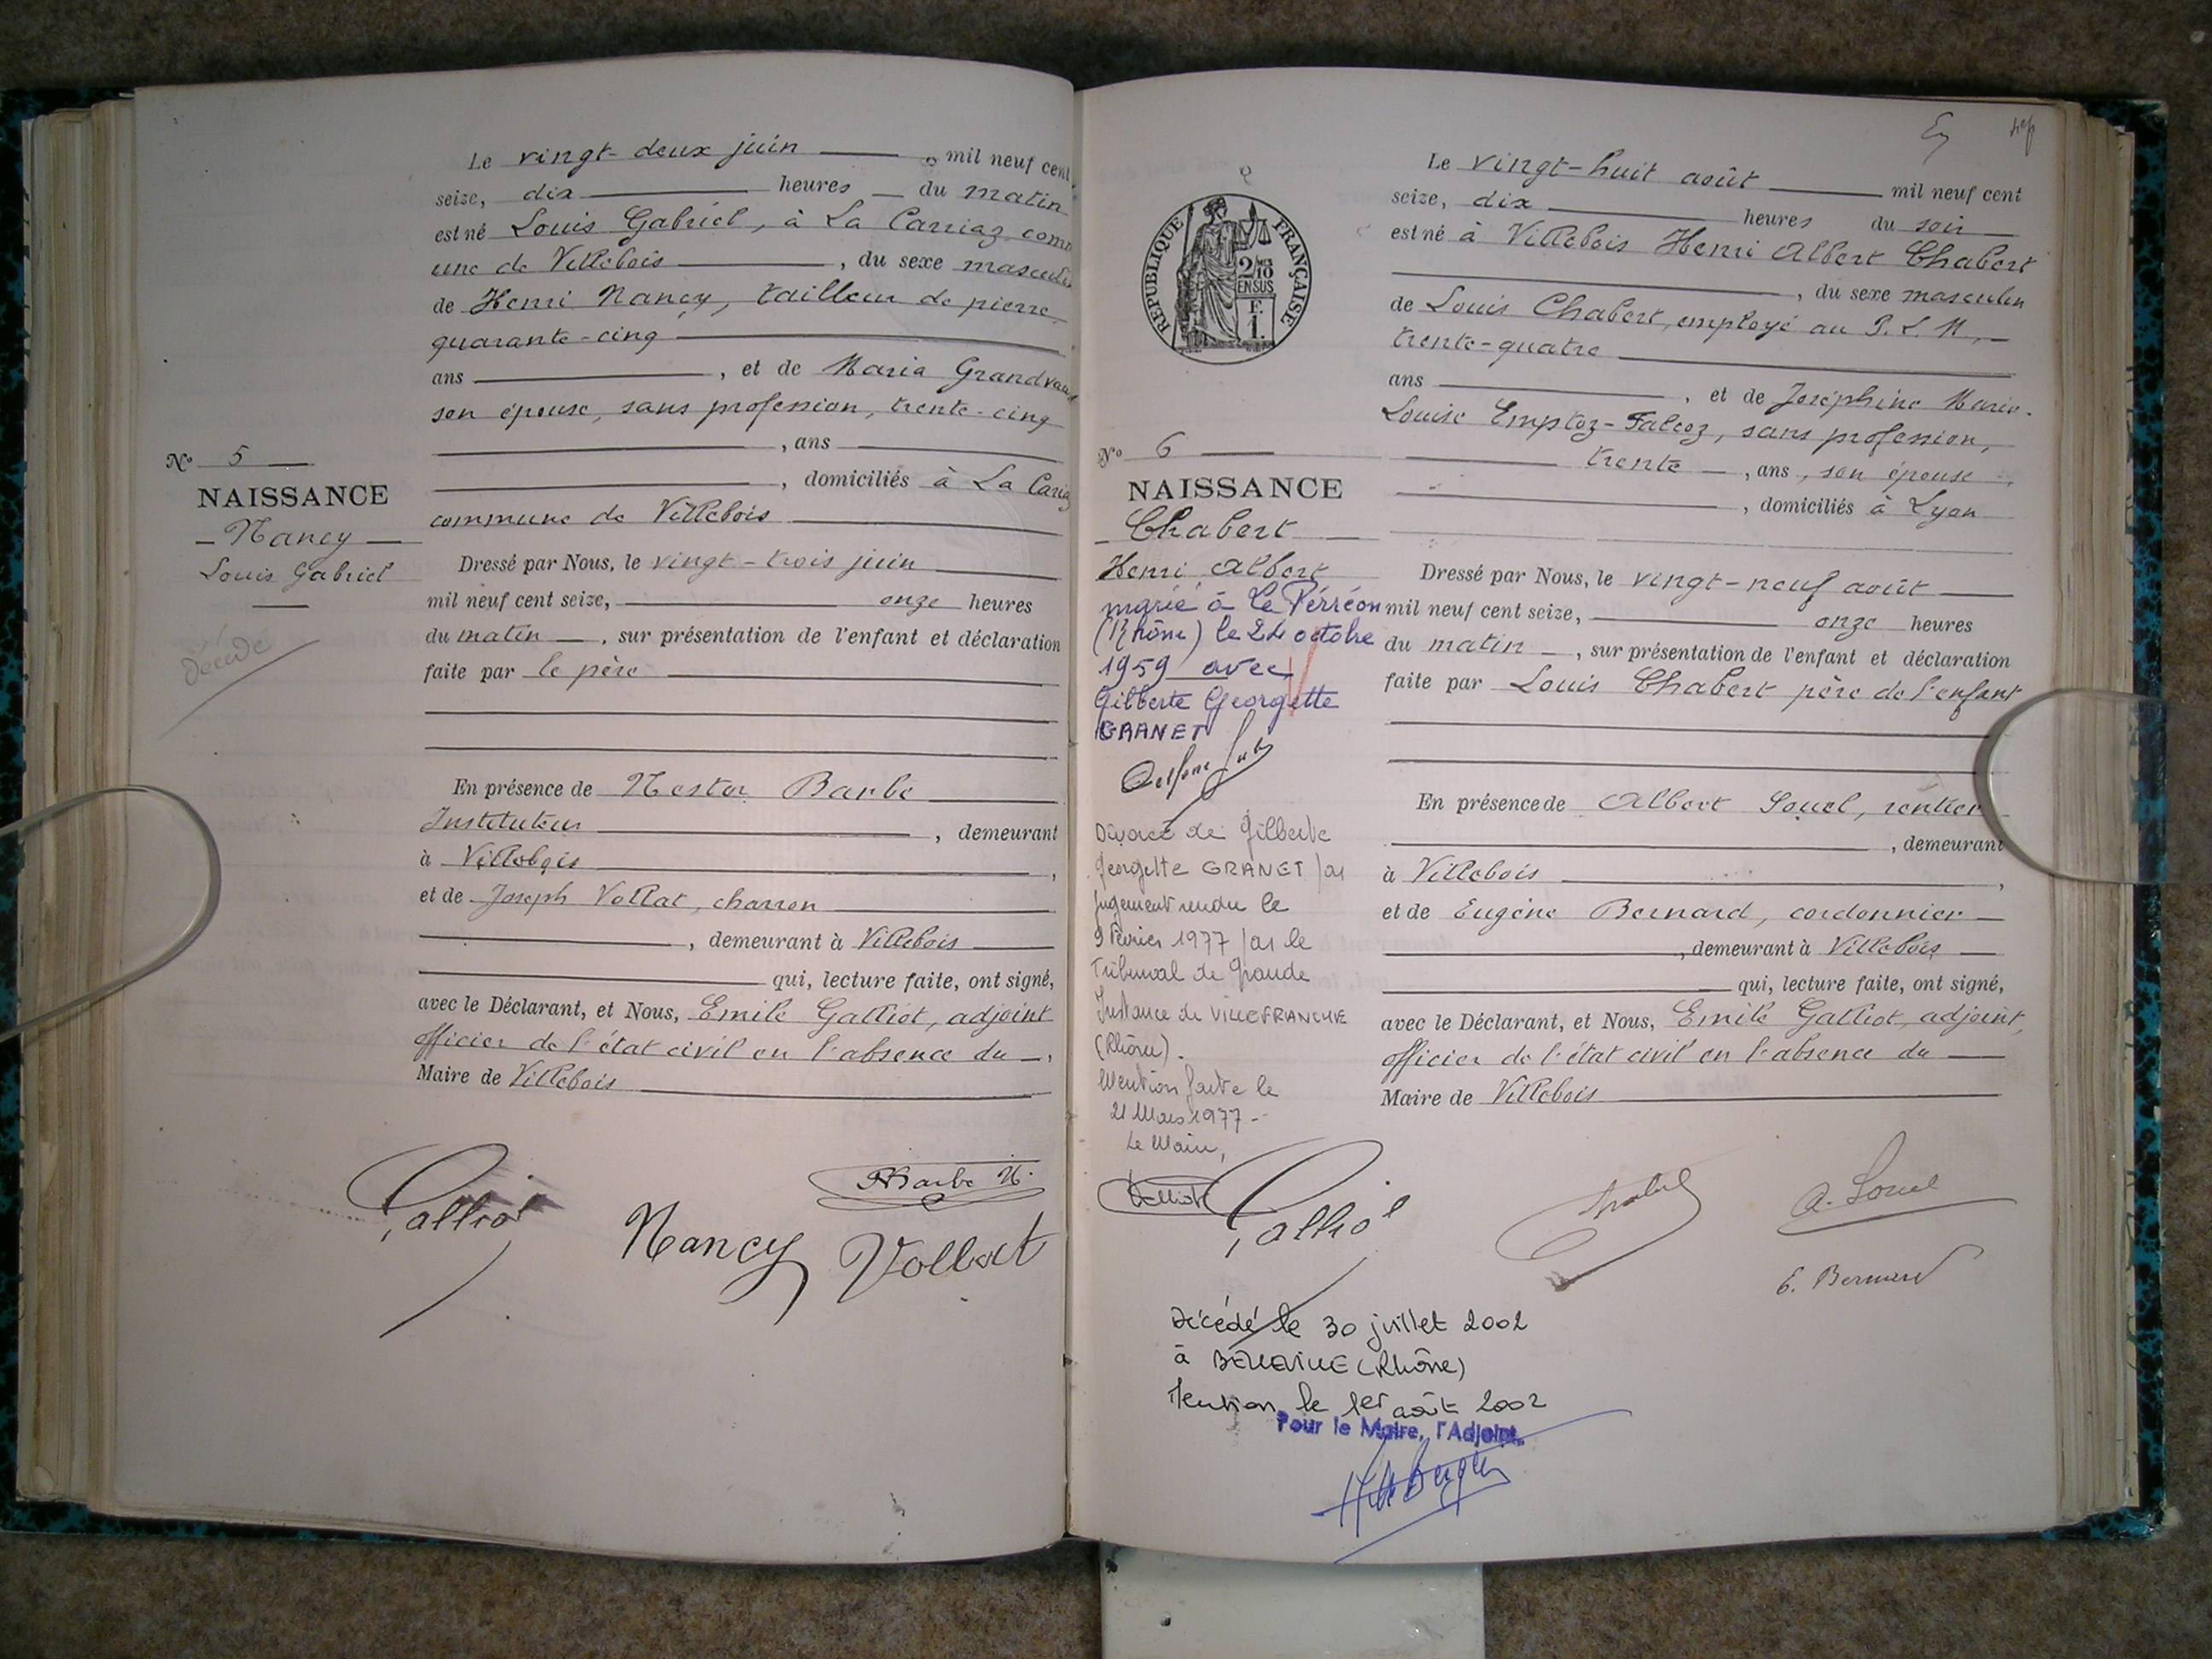 Le vingt-deux juin mil neuf cent
seize, dix heures du matin
est né Louis Gabriel, à La Carriaz com
une de Villebois, du sexe masculin
de Henri Nancy, tailleur de pierre
quarante-cinq
ans, et de Maria Grandvau
son épouse, sans profession, trente-cinq
, ans
, domiciliés à La Cariaz
commune de Villebois
N° 5
NAISSANCE
Nancy
Louis Gabriel
décédé
Dressé par Nous, le vingt-trois juin
mil neuf cent seize, onze heures
du matin, sur présentation de l'enfant et déclaration
faite par le père
En présence de Nestor Barbe
Instituteur, demeurant
à Villebois,
et de Joseph Vollat, charron
, demeurant à Villebois
qui, lecture faite, ont signé,
avec le Déclarant, et Nous, Emile Galliot, adjoint
officier de l'état civil en l'absence du
Maire de Villebois
Galliot
Nancy
Barbe N.
Vollat
Le vingt-huit août mil neuf cent
seize, dix heures du soir
est né à Villebois Henri Albert Chabert
, du sexe masculin
de Louis Chabert, employé au P.L.M,
trente-quatre
ans, et de Joséphine Marie-
Louise Emptoz-Falcoz, sans profession,
trente, ans, son épouse,
, domiciliés à Lyon
RÉPUBLIQUE FRANÇAISE
2/10
EN SUS
F.
1.
N° 6
NAISSANCE
Chabert
Henri Albert
marié à Le Pérréon
(Rhône) le 24 octobre
1959 avec
Gilberte Georgette
GRANET
Divorcé de Gilberte
Georgette GRANET par
jugement rendu le
9 Février 1977 par le
Tribunal de Grande
Instance de VILLEFRANCHE
(Rhône).
Mention faite le
21 Mars 1977 -
Le Maire,
Dressé par Nous, le vingt-neuf août
mil neuf cent seize, onze heures
du matin, sur présentation de l'enfant et déclaration
faite par Louis Chabert père de l'enfant
En présence de Albert Souel, rentier
, demeurant
à Villebois,
et de Eugène Bernard, cordonnier
, demeurant à Villebois
qui, lecture faite, ont signé,
avec le Déclarant, et Nous, Emile Galliot, adjoint,
officier de l'état civil en l'absence du
Maire de Villebois
Galliot
Chabert
A. Souel
E. Bernard
Décédé le 30 juillet 2002
à BELLEVILLE (Rhône)
Mention le 1er août 2002
Pour le Maire, l'Adjoint,